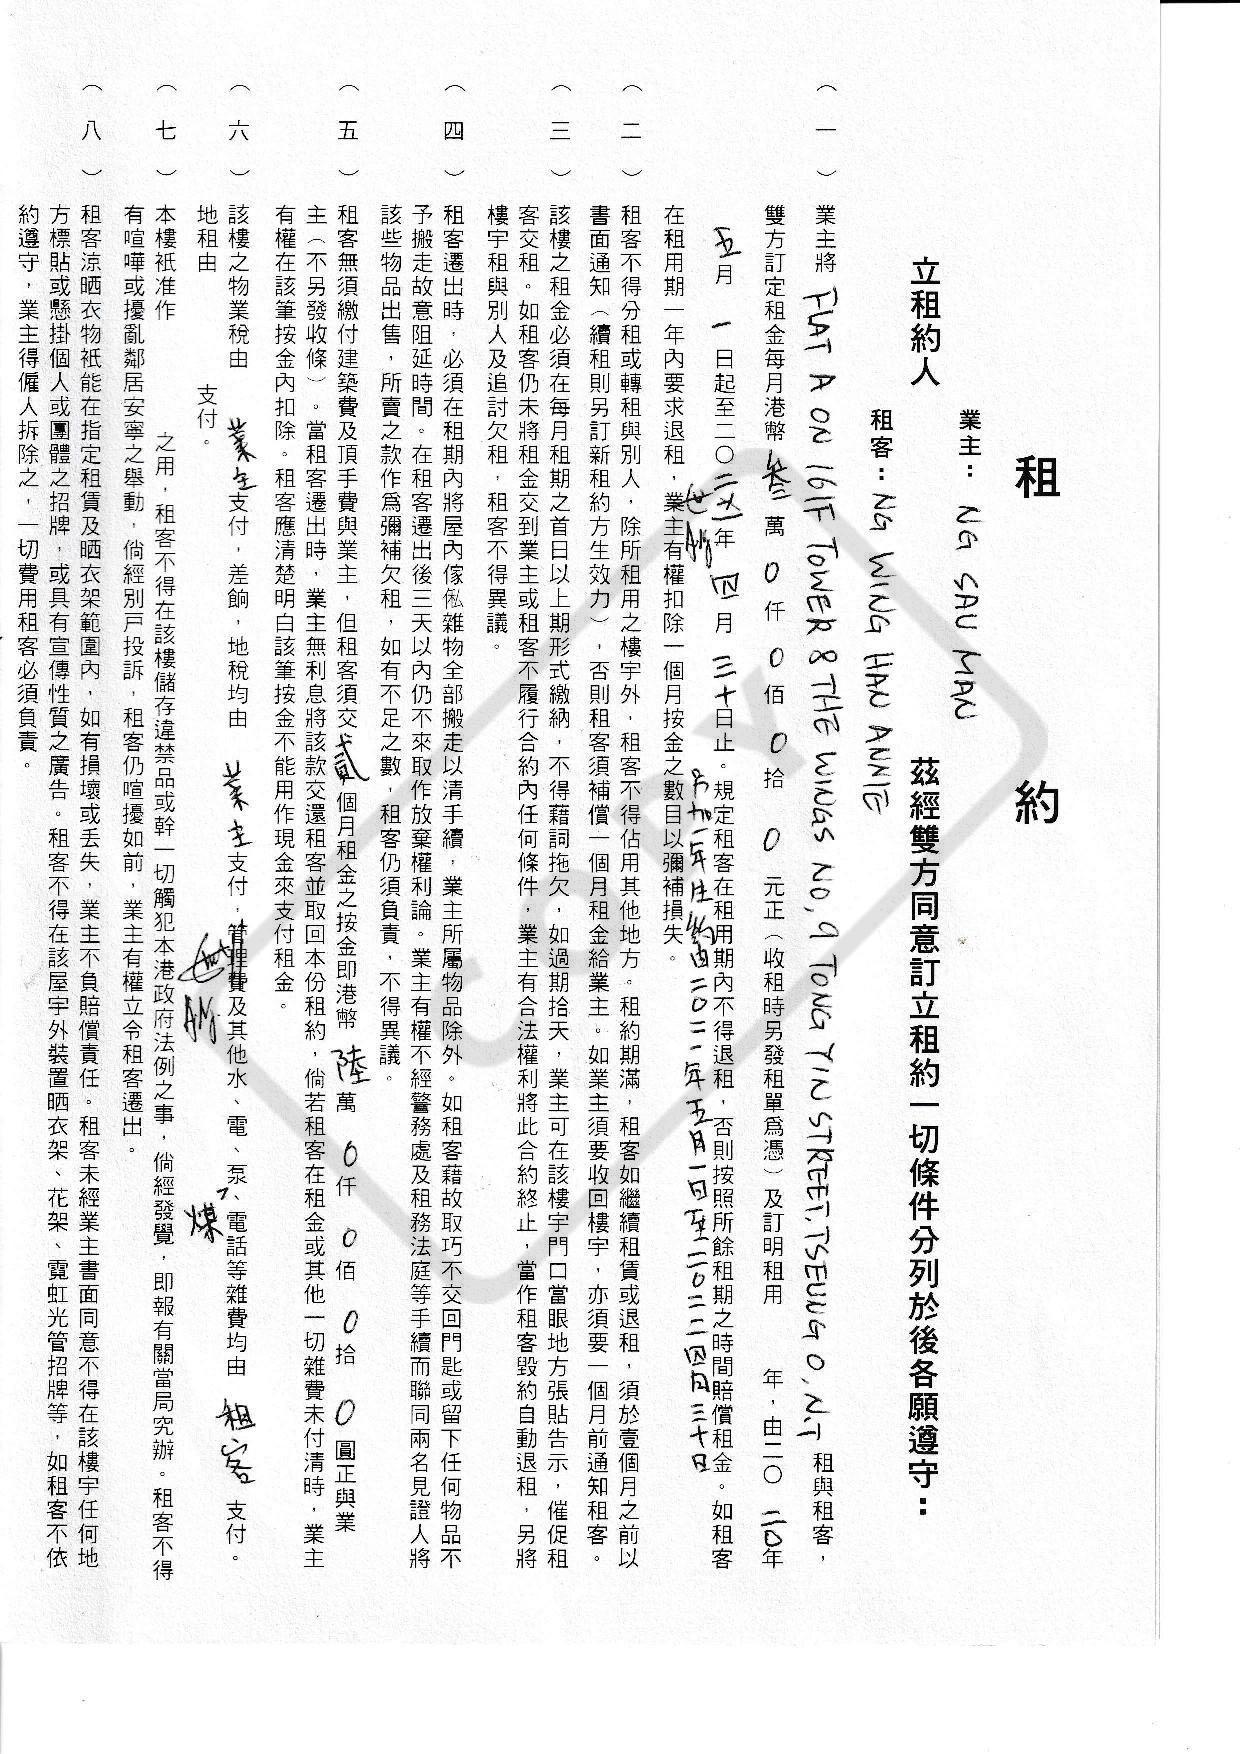 租 約
業主：NG SAU MAN
立租約人 茲經雙方同意訂立租約一切條件分列於後各願遵守：
租客：NG WING HAN ANNIE
（一）業主將 FLAT A ON 16/F TOWER 8 THE WINGS NO, 9 TONG YIN STREET, TSEUNG O, N.T 租與租客，
雙方訂定租金每月港幣 叁 萬 0 仟 0 佰 0 拾 0 元正（收租時另發租單為憑）及訂明租用 年，由二〇二0年
五月一日起至二〇二 年四月三十日止。規定租客在租用期內不得退租，否則按照所餘租期之時間賠償租金。如租客
年生約由二0二一年五月一日至二0二二四月三十日
在租用期一年內要求退租，業主有權扣除一個月按金之數目以彌補損失。
（二）租客不得分租或轉租與別人，除所租用之樓宇外，租客不得佔用其他地方。租約期滿，租客如繼續租賃或退租，須於壹個月之前以
書面通知（續租則另訂新租約方生效力），否則租客須補償一個月租金給業主。如業主須要收回樓宇，亦須要一個月前通知租客。
（三）該樓之租金必須在每月租期之首日以上期形式繳納，不得藉詞拖欠，如過期拾天，業主可在該樓宇門口當眼地方張貼告示，催促租
客交租。如租客仍未將租金交到業主或租客不履行合約內任何條件，業主有合法權利將此合約終止，當作租客毀約自動退租，另將
樓宇租與別人及追討欠租，租客不得異議。
（四）租客遷出時，必須在租期內將屋內傢俬雜物全部搬走以清手續，業主所屬物品除外。如租客藉故取巧不交回門匙或留下任何物品不
予搬走故意阻延時間。在租客遷出後三天以內仍不來取作放棄權利論。業主有權不經警務處及租務法庭等手續而聯同兩名見證人將
該些物品出售，所賣之款作為彌補欠租，如有不足之數，租客仍須負責，不得異議。
（五）租客無須繳付建築費及頂手費與業主，但租客須交貳個月租金之按金即港幣 陸 萬 0 仟 0 佰 0 拾 0 圓正與業
主（不另發收條）。當租客遷出時，業主無利息將該款交還租客並取回本份租約，倘若租客在租金或其他一切雜費未付清時，業主
有權在該筆按金內扣除。租客應清楚明白該筆按金不能用作現金來支付租金。
（六）該樓之物業稅由 業主 支付，差餉，地稅均由 業主 支付，管理費及其他水、電、泵、電話等雜費均由 租客 支付。
、煤
地租由 支付。
（七）本樓衹准作 之用，租客不得在該樓儲存違禁品或幹一切觸犯本港政府法例之事，倘經發覺，即報有關當局究辦。租客不得
有喧嘩或擾亂鄰居安寧之舉動，倘經別戶投訴，租客仍喧擾如前，業主有權立令租客遷出。
（八）租客涼晒衣物衹能在指定租賃及晒衣架範圍內，如有損壞或丟失，業主不負賠償責任。租客未經業主書面同意不得在該樓宇任何地
方標貼或懸掛個人或團體之招牌，或具有宣傳性質之廣告。租客不得在該屋宇外裝置晒衣架、花架、霓虹光管招牌等，如租客不依
約遵守，業主得僱人拆除之，一切費用租客必須負責。
COPY